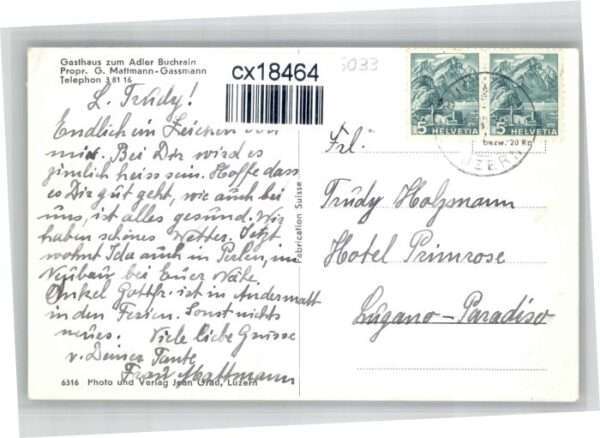 Gasthaus zum Adler Buchrain
Propr. G. Mattmann-Gassmann
Telephon 3 81 16
cx18464
5033
L. Trudy!
Endlich ein Zeichen von
mir. Bei Dir wird es
zimlich heiss sein. Hoffe dass
es Dir gut geht, wie auch bei
uns, ist alles gesund. Wir
haben schönes Wetter. Jetzt
wohnt Ida auch in Perlen, im
Neubau bei Euer Nähe.
Onkel Gottfr. ist in Andermatt
in den Ferien. Sonst nichts
neues. Viele liebe Grüsse
v. Deiner Tante
Frau Mattmann
6316 Photo und Verlag Jean Grad, Luzern
Fabrication Suisse
5 HELVETIA
5 HELVETIA
bezw. 20 Rp
LUZERN
Frl.
Trudy Holzmann
Hotel Primrose
Lugano-Paradiso